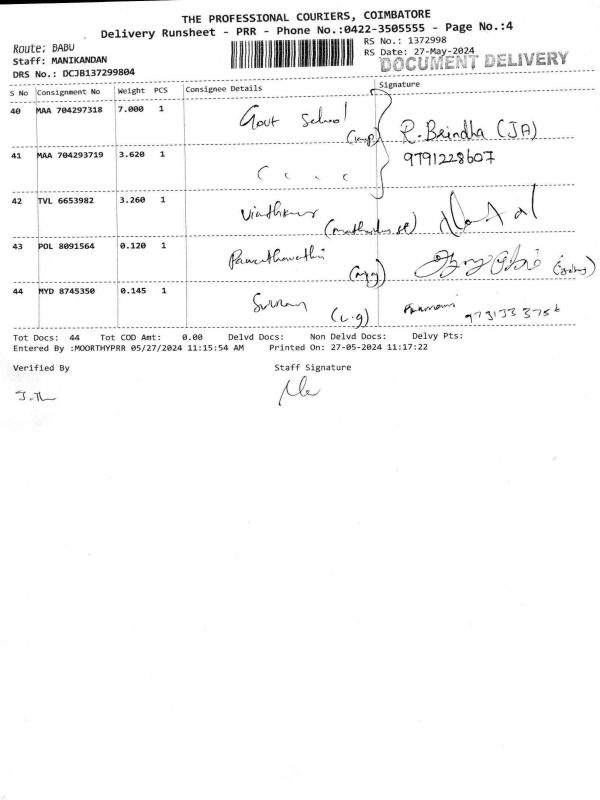 THE PROFESSIONAL COURIERS, COIMBATORE
Delivery Runsheet - PRR - Phone No.:0422-3505555 - Page No.:4
Route: BABU
RS No.: 1372998
Staff: MANIKANDAN
RS Date: 27-May-2024
DRS No.: DCJB137299804
DOCUMENT DELIVERY
S No Consignment No Weight PCS Consignee Details Signature
40 MAA 704297318 7.000 1 Govt School
R. Brindha (JA)
41 MAA 704293719 3.620 1
9791228607
42 TVL 6653982 3.260 1
43 POL 8091564 0.120 1
44 MYD 8745350 0.145 1
Tot Docs: 44 Tot COD Amt: 0.00 Delvd Docs: Non Delvd Docs: Delvy Pts:
Entered By :MOORTHYPRR 05/27/2024 11:15:54 AM Printed On: 27-05-2024 11:17:22
Verified By Staff Signature